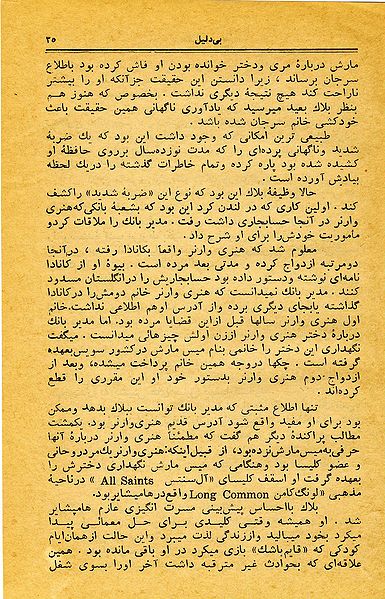 بی‌دلیل
۳۵
مارش دربارهٔ مری ودختر خوانده بودن او فاش کرده بود باطلاع
سرجان برساند ، زیرا دانستن این حقیقت جزآنکه او را بیشتر
ناراحت کند هیچ نتیجهٔ دیگری نداشت . بخصوص که هنوز هم
بنظر بلاك بعید میرسید که یادآوری ناگهانی همین حقیقت باعث
خودکشی خانم سرجان شده باشد .
طبیعی ترین امکانی که وجود داشت این بود که یك ضربهٔ
شدید وناگهانی پرده‌ای را که مدت نوزده‌سال برروی حافظهٔ او
کشیده شده بود پاره کرده وتمام خاطرات گذشته را دریك لحظه
بیادش آورده است .
حالا وظیفهٔ بلاك این بود که نوع این «ضربهٔ شدید» راکشف
کند . اولین کاری که در لندن کرد این بود که بشعبهٔ بانکی‌که‌هنری
وارنر در آنجا حسابجاری داشت رفت . مدیر بانك را ملاقات کردو
ماموریت خودش‌را برای او شرح داد .
معلوم شد که هنری وارنر واقعاً بکانادا رفته ، درآنجا
دومرتبه ازدواج کرده و مدتی بعد مرده است . بیوهٔ او از کانادا
نامه‌ای نوشته ودستور داده بود حسابجاریش را درانگلستان مسدود
کنند . مدیر بانك نمیدانست که هنری وارنر خانم دومش‌را درکانادا
گذاشته یابجای دیگری برده واز آدرس اوهم اطلاعی نداشت.خانم
اول هنری وارنر سالها قبل ازاین قضایا مرده بود. اما مدیر بانك
دربارهٔ دختر هنری وارنر اززن اولش چیزهائی میدانست . میگفت
نگهداری این دختر را خانمی بنام میس مارش درکشور سویس‌بعهده
گرفته است . چکها دروجه همین خانم پرداخت میشده، وبعد از
ازدواج دوم هنری وارنر بدستور خود او این مقرری را قطع
کرده‌اند .
تنها اطلاع مثبتی که مدیر بانك توانست ببلاك بدهد وممکن
بود برای او مفید واقع شود آدرس قدیم هنری‌وارنر بود. یکمشت
مطالب پراکندهٔ دیگر هم گفت که مطمئناً هنری وارنر دربارهٔ آنها
حرفی‌به‌میس مارش‌نزده‌بود، از قبیل‌اینکه:هنری‌وارنر یك‌مردروحانی
و عضو کلیسا بود وهنگامی که میس مارش نگهداری دخترش را
بعهده گرفت او اسقف کلیسای «آل‌سنتس All Saints » درناحیهٔ
مذهبی «لونگ‌کامن Long Common واقع‌درهامپشایر‌بود.
بلاك بااحساس پیش‌بینی مسرت انگیزی عازم هامپشایر
شد . او همیشه وقتی کلیدی برای حل معمائی پیدا
میکرد بخود میبالید واززندگی لذت میبرد واین حالت ازهمان‌ایام
کودکی که «قایم‌باشك» بازی میکرد در او باقی مانده بود . همین
علاقه‌ای که بحوادث غیر مترقبه داشت آخر اورا بسوی شغل